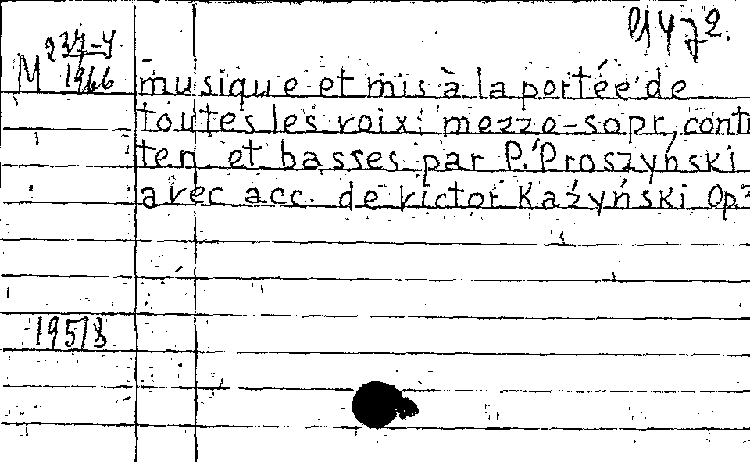 91472.
M 237-4
1966
musique et mis à la portée de
toutes les voix: mezzo-sopr, contr
ten. et basses par P. Proszyński
avec acc. de Victor Każyński Op
19518